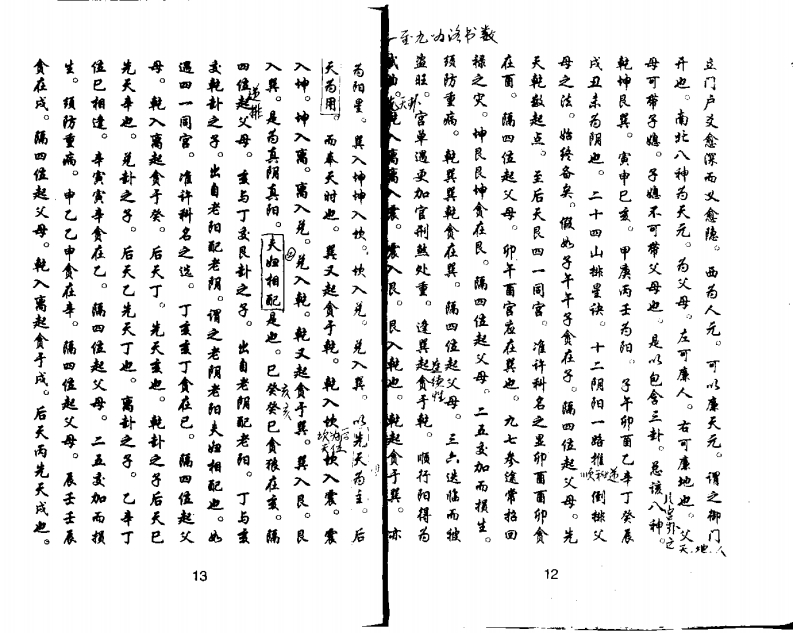 至九如洛书数
立门户爻愈深而义愈隐。西为人元。可以廉天元。谓之御门
开也。南北八神为天元。为父母。左可廉人。右可廉地也。父
母可带子媳。子媳不可带父母也。是以包含三卦。总该八神。
乾坤艮巽。寅申巳亥。甲庚丙壬为阳。子午卯酉乙辛丁癸辰
戌丑未为阴也。二十四山排星诀。十二阴阳一路推倒排父
母之法。始终备矣。假如子午午子贪在子。隔四位起父母。先
天乾数起点。至后天艮四一同宫。准许科名之显卯酉酉卯贪
在酉。隔四位起父母。卯午酉宫应在巽也。九七参途常招回
禄之灾。坤艮艮坤贪在艮。隔四位起父母。二五交加而损生。
须防重病。乾巽巽乾贪在巽。隔四位起父母。三六迭临而被
盗旺。宫单遇更加官刑煞处重。逢巽起贪于乾。顺行阳得为
乾入离离入震。震入艮。艮入乾也。乾起贪于巽。亦
天 地 人
12
为阳星。巽入坤坤入坎。坎入兑。兑入巽。以先天为主。后
天为用。而奉天时也。巽又起贪于乾。乾入坎坎入震。震
入坤。坤入离。离入兑。兑入乾。乾又起贪于巽。巽入艮。艮
入巽。是为真阴真阳。夫妇相配是也。巳癸癸巳贪狼在亥。隔
四位起父母。亥与丁交艮卦之子。出自老阴配老阳。丁与亥
交乾卦之子。出自老阳配老阴。谓之老阴老阳夫妇相配也。如
遇四一同宫。准许科名之选。丁亥亥丁贪在巳。隔四位起父
母。乾入离起贪于癸。后天丁。先天亥也。乾卦之子后天巳
先天辛也。兑卦之子。后天乙先天丁也。离卦之子。乙辛丁
位巳相逢。辛寅寅辛贪在乙。隔四位起父母。二五交加而损
生。须防重病。申乙乙申贪在辛。隔四位起父母。辰壬壬辰
贪在戌。隔四位起父母。乾入离起贪于戌。后天丙先天戌也。
13